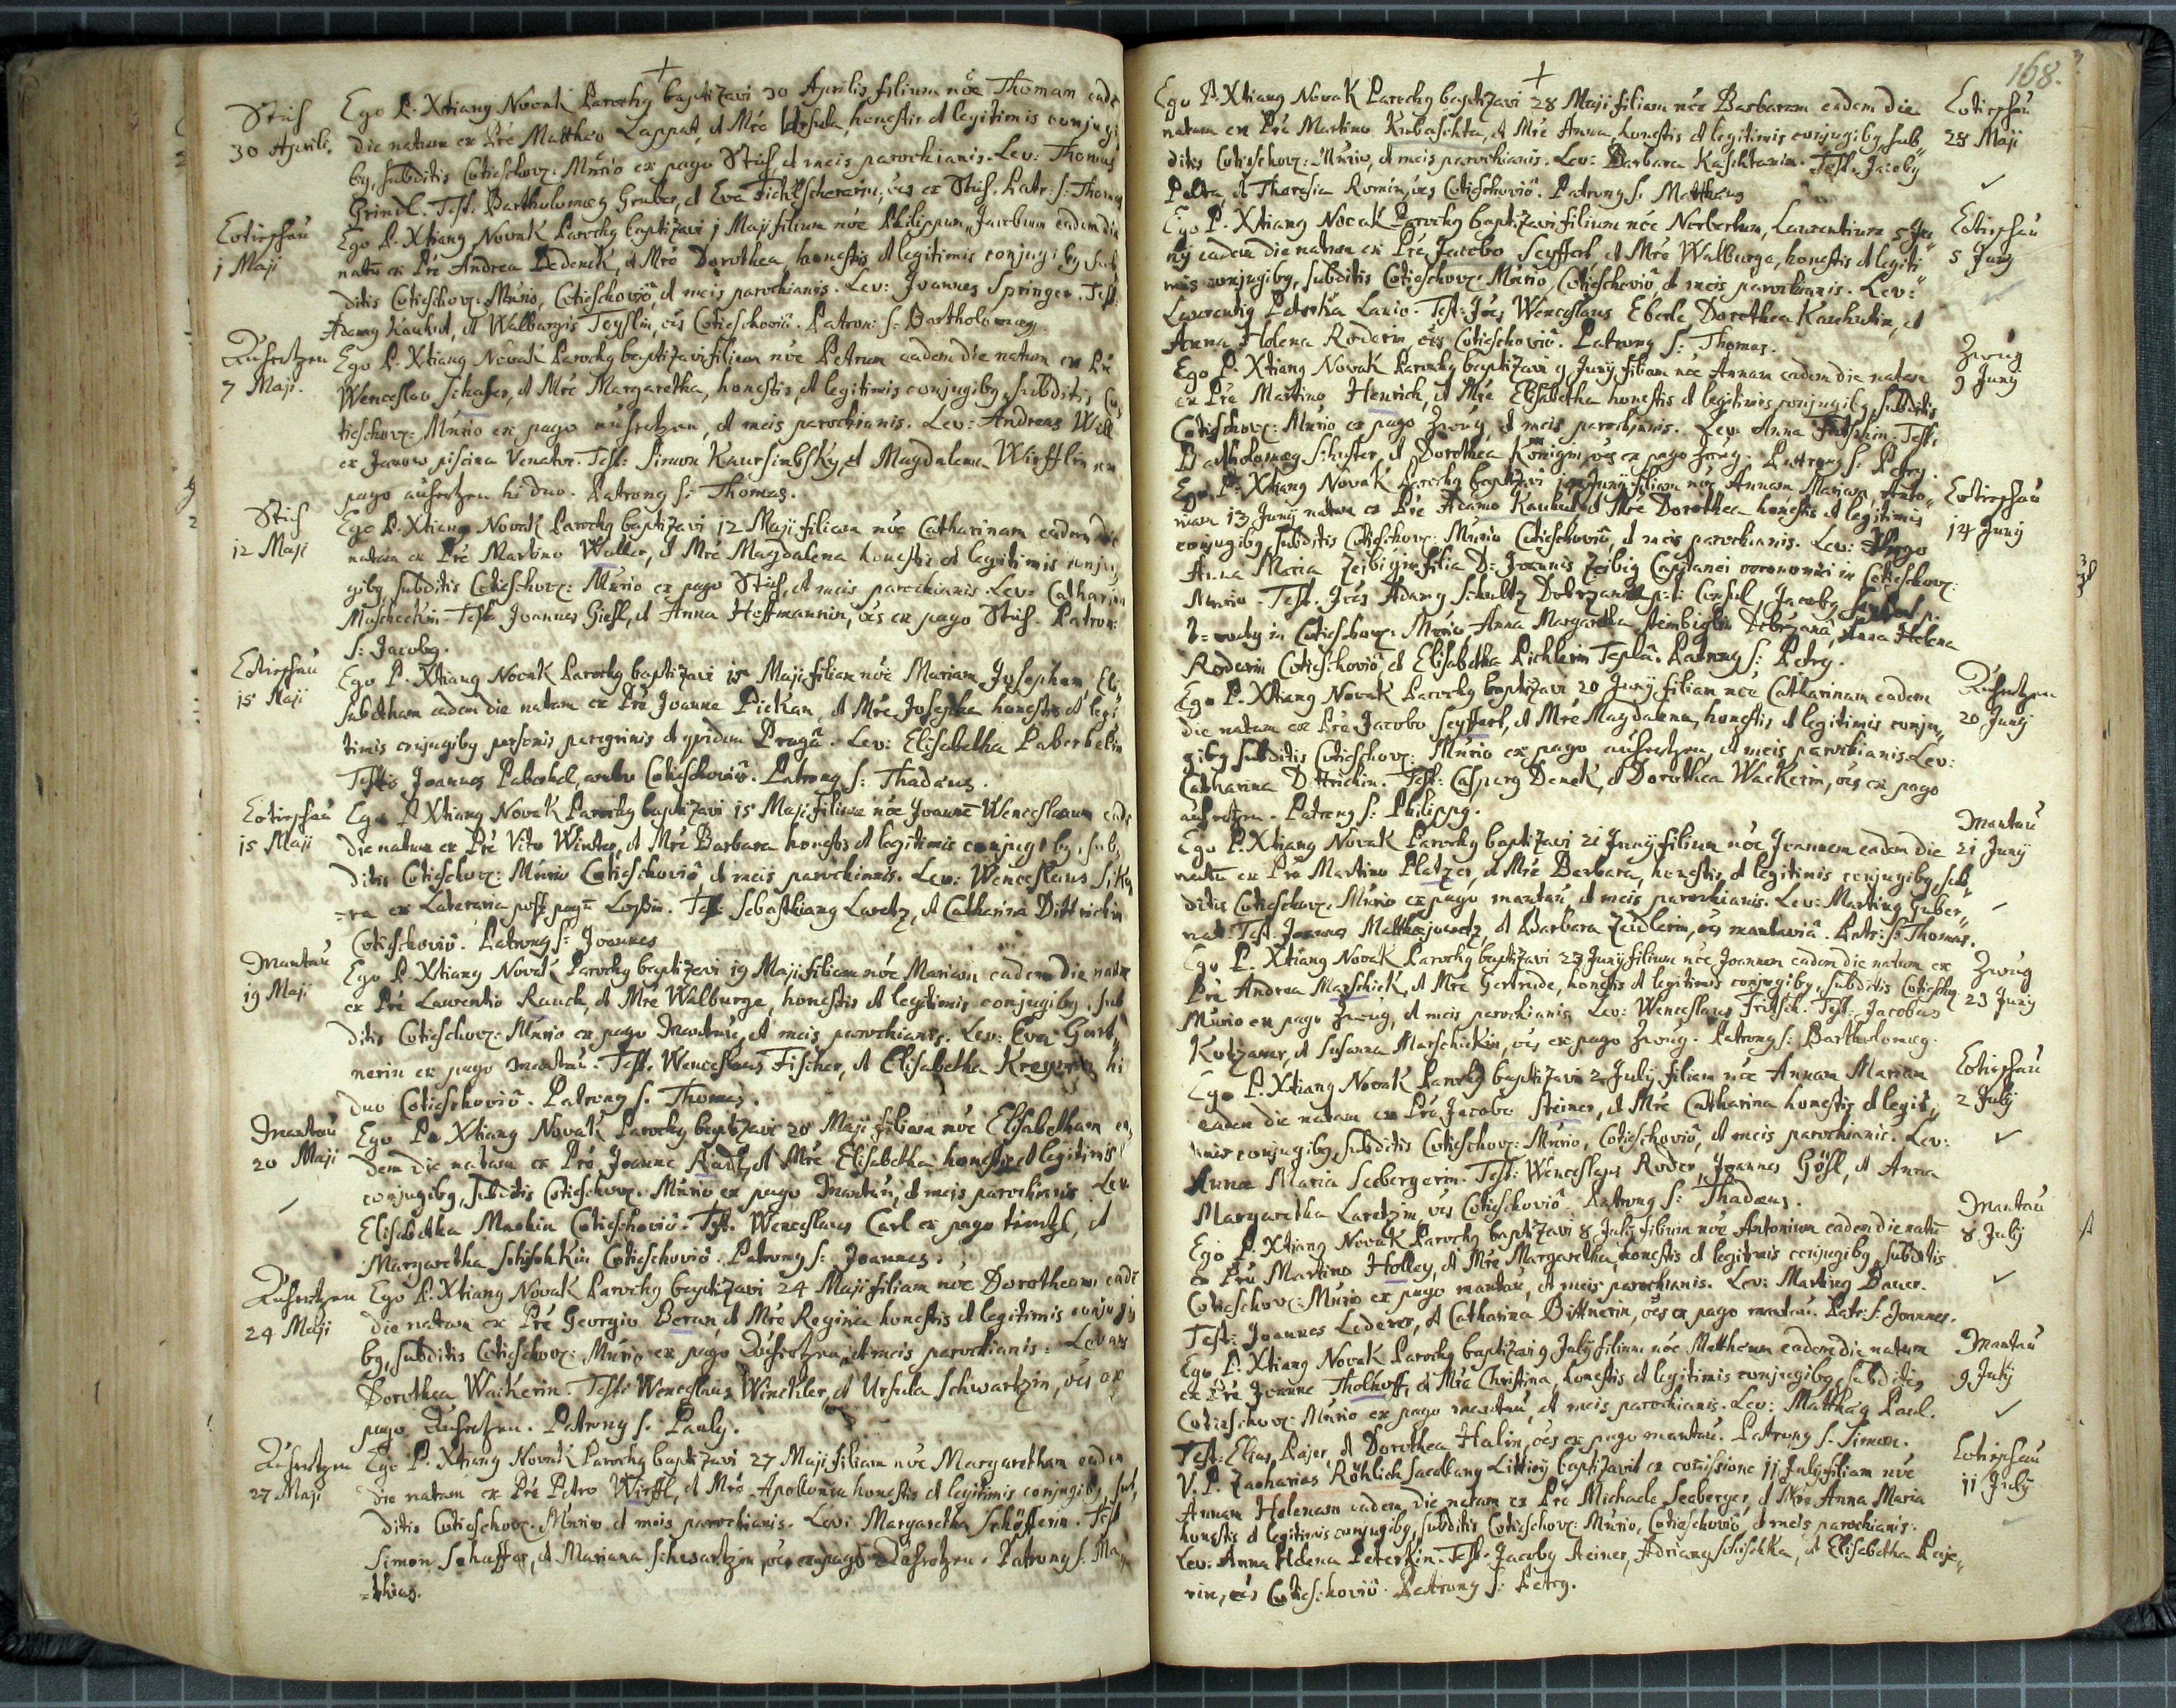 Stich
30 Aprili.
Ego P. Xtiang Novak Parochg baptizavi 30 Aprilis filium nõe Thomam eade
die natum ex Pre Matthæo Lappat, et Mre Ursula, honestis et legitimis conjugi
bg, subditis Cotieschov: Mũrio ex pago Stich et meis parochianis. Lev: Thomas
Grindl. Test. Bartholomeg Gruber, et Eva, ões ex Stich. Patr: S: Thomas
Cotieschau
1 Maji
Ego P. Xtiang Novak Parochg baptizavi 1 Maji filium nõe Philippum Jacobum eadem die
natũ ex Pre Andrea Bedenck, et Mre Dorothea, honestis et legitimis conjugibg, sub
ditis Cotieschov: Mũrio, Cotieschoviõ et meis parochianis. Lev: Joannes Springer. Test:
Adamg Kauhut, et Walburgis Teyslin, ões Cotieschoviõ. Patron: S: Bartholomæg
Auhertzen
7 Maji.
Ego P. Xtiang Novak Parochg baptizavi filium nõe Petrum eadem die natum ex Pre
Wenceslao Schafer, et Mre Margaretha, honestis, et legitimis conjugibg, subditis Co
tieschov: Mũrio ex pago auhertzen, et meis parochianis. Lev: Andreas Will
ex Janow piscina Venator. Test: Simon Kaursimbsky, et Magdalena Wirfflin ex
pago auhertzen hi duo. Patrong S: Thomas.
Stich
12 Maji
Ego P. Xtiang Novak Parochg baptizavi 12 Maji filiam nõe Catharinam eadem die
natam ex Pre Martino Waller, et Mre Magdalena honestis et legitimis conju
gibg, subditis Cotieschov: Mũrio ex pago Stich, et meis parochianis. Lev: Catharina
Muscheckin. Test: Joannes Giesl, et Anna Hoffmannin, ões ex pago Stich. Patron:
S: Jacobg.
Cotieschau
15 Maji
Ego P. Xtiang Novak Parochg baptizavi 15 Maji filiam nõe Mariam Josepham, Eli
sabetham eadem die natam ex Pre Joanne Pickan, et Mre Josepha honestis et legi
timis conjugibg personis peregrinis et quidem Pragâ. Lev: Elisabetha Paberhelin
Testis Joannes Paberhel, ambo Cotieschoviõ. Patrong S: Thadæus.
Cotieschau
15 Maji
Ego P. Xtiang Novak Parochg baptizavi 15 Maji filium nõe Joannẽ Wenceslaum eade
die natum ex Pre Vito Winter, et Mre Barbara honestis et legitimis conjugibg, sub
ditis Cotieschov: Mũrio Cotieschoviõ, et meis parochianis. Lev: Wenceslaus Siko
=ra ex Laterana post pagũ Lossin. Test: Sebasthiang Laretz, et Catharina Dittrichin
Cotieschoviõ. Patrong S: Joannes
Mantau
19 Maji
Ego P. Xtiang Novak Parochg baptizavi 19 Maji filiam nõe Mariam eadem die natam
ex Pre Laurentio Rauch, et Mre Walburga, honestis et legitimis conjugibg, sub
ditis Cotieschov: Mũrio ex pago Mantau, et meis parochianis. Lev: Eva Gert
nerin ex pago mantau. Test. Wenceslaus Fischer, et Elisabetha hi
duo Cotieschoviõ. Patrong S. Thomas.
Mantau
20 Maji
Ego P. Xtiang Novak Parochg baptizavi 20 Maji filiam nõe Elisabetham ea
dem die natam ex Pre Joanne, et Mre Elisabetha honestis et legitimis
conjugibg, subditis Cotieschov: Mũrio ex pago Mantau, et meis parochianis. Lev
Elisabetha Cotieschoviõ. Test. Wenceslaus Carl ex pago, et
Margaretha Schischkin Cotieschoviõ. Patrong S: Joannes.
Auhertzen
24 Maji
Ego P. Xtiang Novak Parochg baptizavi 24 Maji filiam nõe Dorotheam eade
die natam ex Pre Georgio Beran, et Mre Regina honestis et legitimis conjugi
bg, subditis Cotieschov: Mũrio ex pago Auhertzen, et meis parochianis: Levans
Dorothea Wackerin. Test: Wenceslaus Winckler, et Ursula Schwartzin, ões ex
pago Auhertzen. Patrong S. Paulg.
Auhertzen
27 Maji
Ego P. Xtiang Novak Parochg baptizavi 27 Maji filiam nõe Margaretham eadem
die natam ex Pre Petro Wirffl, et Mre Apollonia honestis et legitimis conjugibg, sub
ditis Cotieschov: Mũrio et meis parochianis. Lev: Margaretha Schöfferin. Test
Simon Schaffer, et Mariana Schwartzin, ões ex pago Auhertzen. Patrong S. Ma
=thias.
168.
Ego P. Xtiang Novak Parochg baptizavi 28 Maji filiam nõe Barbaram eadem die
natam ex Pre Martino Kubaschta, et Mre Anna, honestis et legitimis conjugibg, sub
ditis Cotieschov: Mũrio, et meis parochianis. Lev: Barbara Kaschtanin. Test. Jacobg
Pelta, et Theresia Romin, ões Cotieschoviõ. Patrong S. Matthæus
Cotieschau
28 Maji
Ego P. Xtiang Novak Parochg baptizavi filium nõe Norbertum, Laurentium 5 Ju
nij eadem die natum ex Pre Jacobo Seyffert, et Mre Walburga, honestis et legiti
mis conjugibg, subditis Cotieschov: Mũrio, Cotieschoviõ, et meis parochianis. Lev:
Laurentig Peterka Lanio. Test: Wenceslaus Eberle Dorothea Kauhutin, et
Anna Helena Roderin, ões Cotieschoviõ. Patrong S: Thomas.
Cotieschau
5 Junij
Ego P. Xtiang Novak Parochg baptizavi 9 Junij filiam nõe Annam eadem die natam
ex Pre Martino Henrich, et Mre Elisabetha honestis et legitimis conjugibg, subditis
Cotieschov: Mũrio ex pago Zwug, et meis parochianis. Lev: Anna Fritschin. Test:
Bartholomæg Schuster, et Dorothea Königin, ões ex pago Zwug. Patrong S: Petrg.
Zwug
9 Junij
Ego P. Xtiang Novak Parochg baptizavi 14 Junij filiam nõe Annam Mariam, Anto
niam 13 Junij natam ex Pre Adamo Kauhut, et Mre Dorothea honestis et legitimis
conjugibg, subditis Cotieschov: Mũrio Cotieschoviõ, et meis parochianis. Lev: Virgo
Anna Maria Zeibigin filia D: Joannis Zeibig Capitanei oeconomici in Cotieschov:
Mũrio. Test. Adamg Schultz Dobrzanii p: t: Consul, Jacobg
in Cotieschov: Mũrio, Anna Margaretha Steinbiglin Dobrzana, Anna Helena
Roderin Cotieschoviõ, et Elisabetha Pichlerin Teplâ. Patrong S: Petrg.
Cotieschau
14 Junij
Ego P. Xtiang Novak Parochg baptizavi 20 Junij filiam nõe Catharinam eadem
die natam ex Pre Jacobo Seyffert, et Mre Magdalena, honestis et legitimis conju
gibg subditis Cotieschov: Mũrio ex pago auhertzen, et meis parochianis. Lev:
Catharina Dittrichin. Test: Casparg Denck, et Dorothea Wackerin, ões ex pago
auhertzen. Patrong S: Philippg.
Auhertzen
20 Junij
Ego P. Xtiang Novak Parochg baptizavi 21 Junij filium nõe Joannem eadem die
natũ ex Pre Martino Platzer, et Mre Barbara, honestis, et legitimis conjugibg, sub
ditis Cotieschov: Mũrio ex pago mantau, et meis parochianis. Lev: Marting Guber
nat. Test. Joannes Matthejowetz, et Barbara Zeidlerin, ões mantaviâ. Patr: S: Thomas.
Mantau
21 Junij
Ego P. Xtiang Novak Parochg baptizavi 23 Junij filium nõe Joannem eadem die natum ex
Pre Andrea Marschick, et Mre Gertrude, honestis et legitimis conjugibg, subditis Cotieschov:
Mũrio ex pago Zwug, et meis parochianis. Lev: Wenceslaus Fritsch. Test: Jacobus
Kotzaner, et Susanna Marschickin, ões ex pago Zwug. Patrong S: Bartholomæg.
Zwug
23 Junij
Ego P. Xtiang Novak Parochg baptizavi 2 Julij filiam nõe Annam Mariam
eadem die natam ex Pre Jacobo Steiner, et Mre Catharina honestis et legit
imis conjugibg, subditis Cotieschov: Mũrio, Cotieschoviõ, et meis parochianis. Lev:
Anna Maria Seebergerin. Test: Wenceslaus Roder, Joannes Gösl, et Anna
Margaretha Laretzin ões Cotieschoviõ. Patrong S: Thadæus.
Cotieschau
2 Julij
Ego P. Xtiang Novak Parochg baptizavi 8 Julij filium nõe Antonium eadem die natũ
ex Pre Martino Holley, et Mre Margaretha, honestis et legitimis conjugibg, subditis
Cotieschov: Mũrio ex pago mantau, et meis parochianis. Lev: Marting Bauer.
Test: Joannes Lederer, et Catharina Bittnerin, ões ex pago mantau. Patr: S: Joannes.
Mantau
8 Julij
Ego P. Xtiang Novak Parochg baptizavi 9 Julij filium nõe Mattheum eadem die natum
ex Pre Joanne Tholhoff, et Mre Christina, honestis et legitimis conjugibg, subditis
Cotieschov: Mũrio ex pago mantau, et meis parochianis. Lev: Matthæg Paul.
Test: Elias Bajer, et Dorothea Halin, ões ex pago mantau. Patrong S. Simon.
Mantau
9 Julij
V. P. Zacharias Röhlich Sacellang Litticij baptizavit ex com̃issione 11 Julij filiam nõe
Annam Helenam eadem die natam ex Pre Michaele Seeberger, et Mre Anna Maria
honestis et legitimis conjugibg, subditis Cotieschov: Mũrio, Cotieschoviõ, et meis parochianis.
Lev: Anna Helena Peterkin. Test. Jacobg Steiner, Adriang Schischka, et Elisabetha Baje
rin, ões Cotieschoviõ. Patrong S: Petrg.
Cotieschau
11 Julij